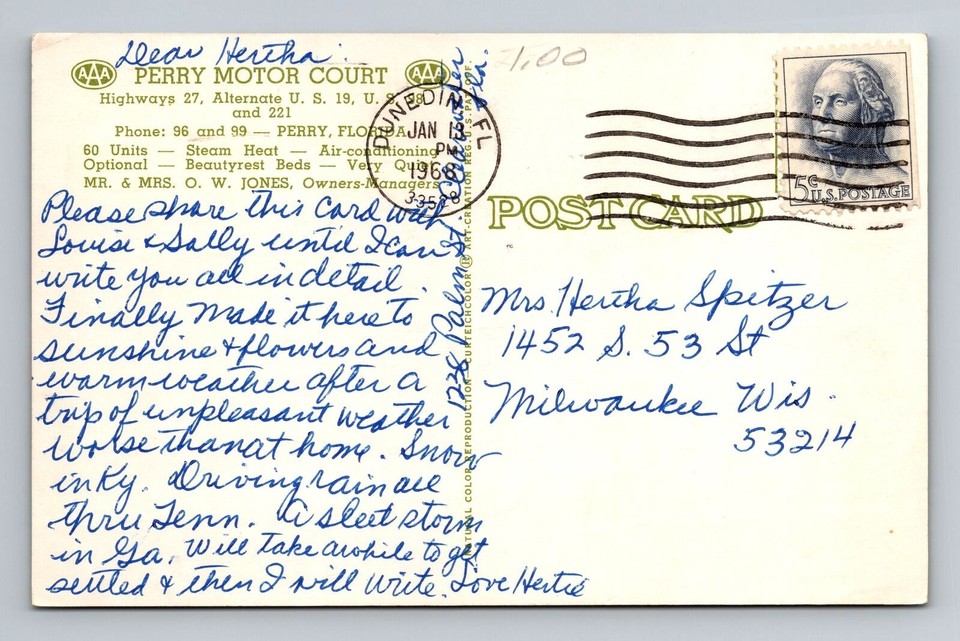 Dear Hertha:
AAA PERRY MOTOR COURT AAA
Highways 27, Alternate U. S. 19, U. S. 98
and 221
Phone: 96 and 99 — PERRY, FLORIDA
60 Units — Steam Heat — Air-conditioning
Optional — Beautyrest Beds — Very Quiet
MR. & MRS. O. W. JONES, Owners-Managers
Please share this card with
Louise & Sally until I can
write you all in detail.
Finally made it here to
sunshine & flowers and
warm weather after a
trip of unpleasant weather
worse than at home. Snow
in Ky. Driving rain all
thru Tenn. A sleet storm
in Ga. Will take awhile to get
settled & then I will write. Love Hertie
1238 Palm St. Clearwater
Fla.
NATURAL COLOR REPRODUCTION CURTEICHCOLOR ® ART-CREATION REG. U.S. PAT. OFF.
1.00
DUNEDIN, FL
JAN 15
PM
1968
33528
5¢
U.S. POSTAGE
POST CARD
Mrs. Hertha Spitzer
1452 S. 53 St
Milwaukee Wis.
53214